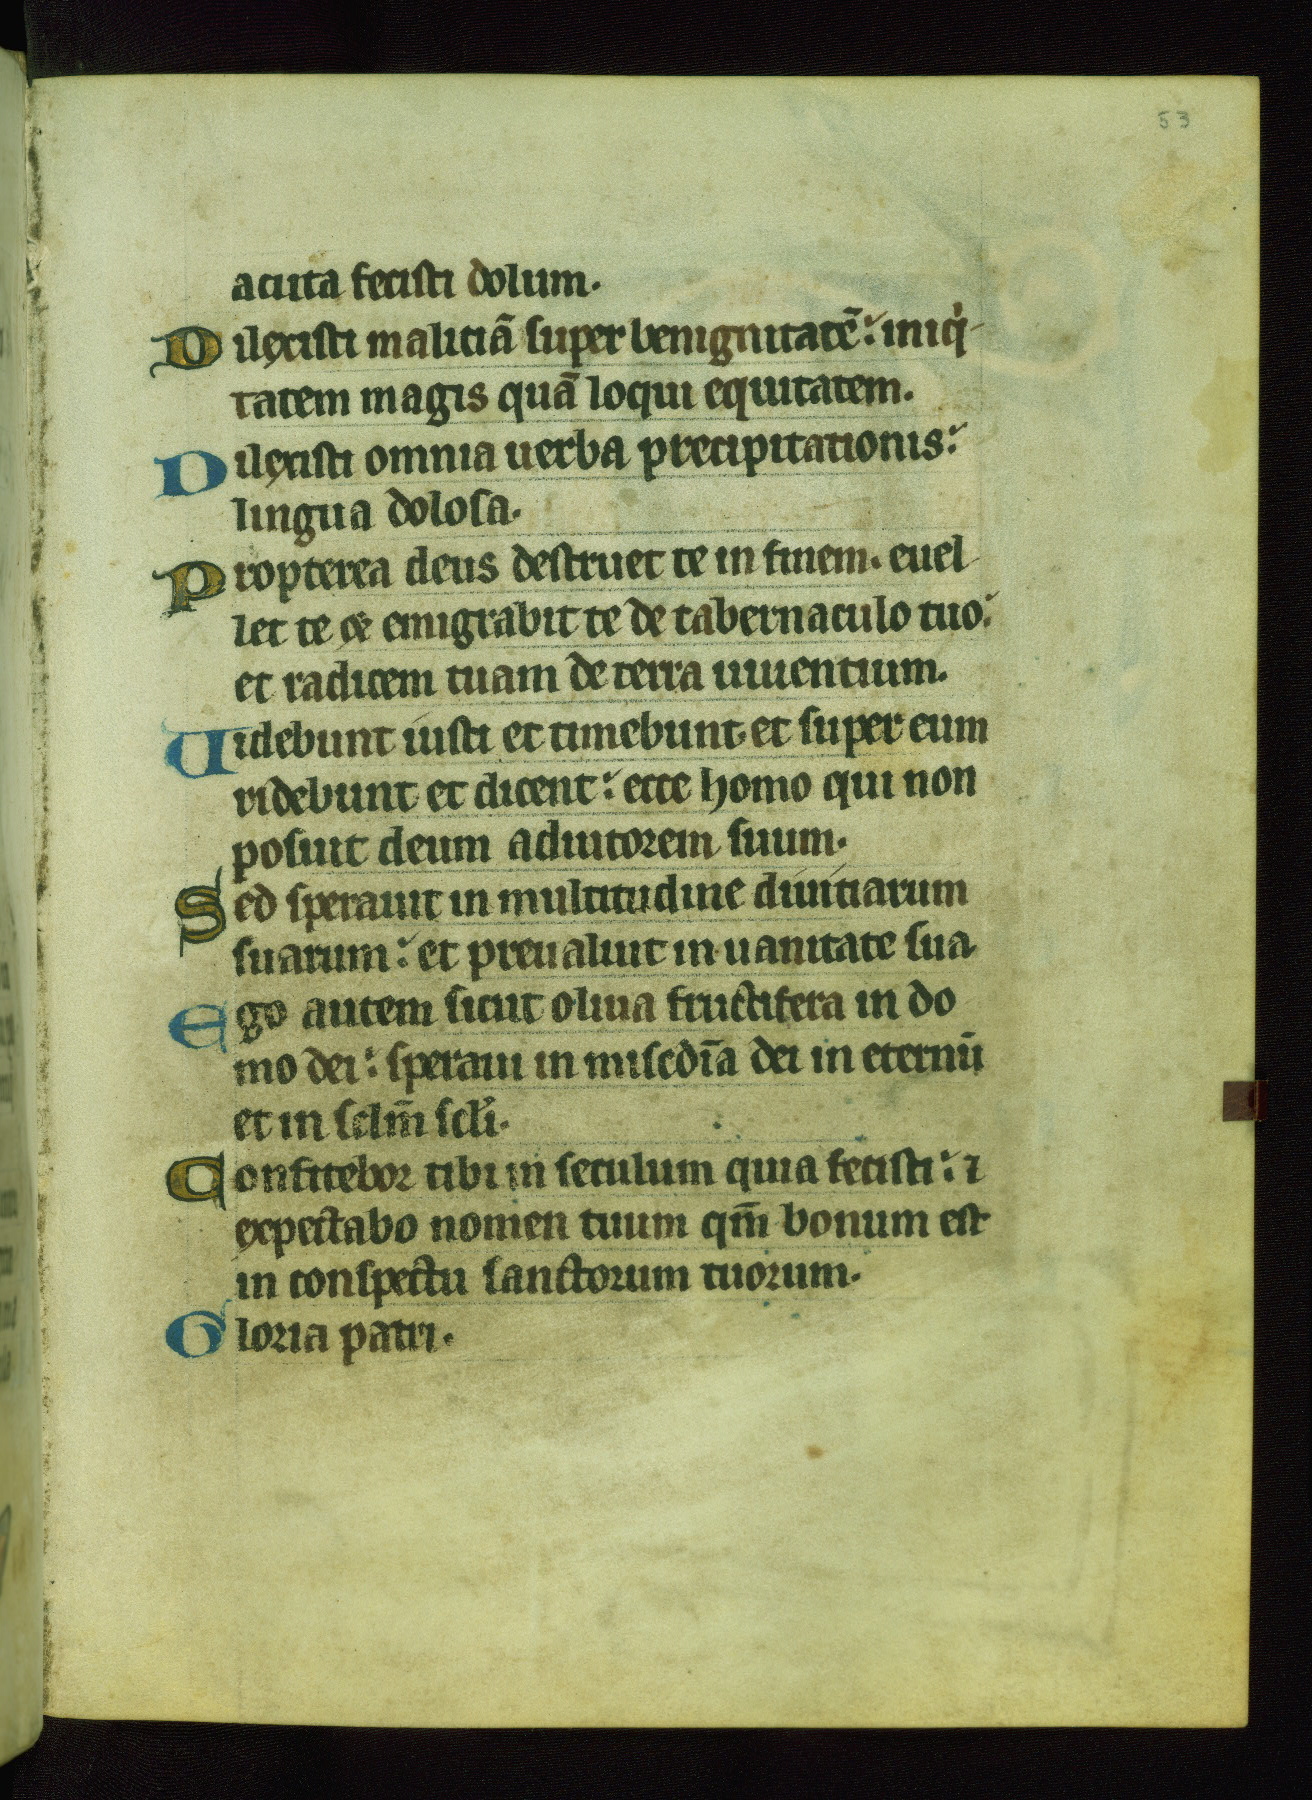 53
acuta fecisti dolum.
Dilexisti maliciā super benignitatē: iniqi-
tatem magis quā loqui equitatem.
Dilexisti omnia uerba precipitationis:
lingua dolosa.
Propterea deus destruet te in finem. euel-
let te & emigrabit te de tabernaculo tuo:
et radicem tuam de terra uiuentium.
Uidebunt iusti et timebunt. et super eum
ridebunt et dicent: ecce homo qui non
posuit deum adiutorem suum.
Sed sperauit in multitudine diuitiarum
suarum: et preualuit in uanitate sua.
Ego autem sicut oliua fructifera in do
mo dei: speraui in miscdīa dei in eternū
et in sclm̄ scli.
Confitebor tibi in seculum quia fecisti: ⁊
expectabo nomen tuum qm̄ bonum est
in conspectu sanctorum tuorum.
Gloria patri.